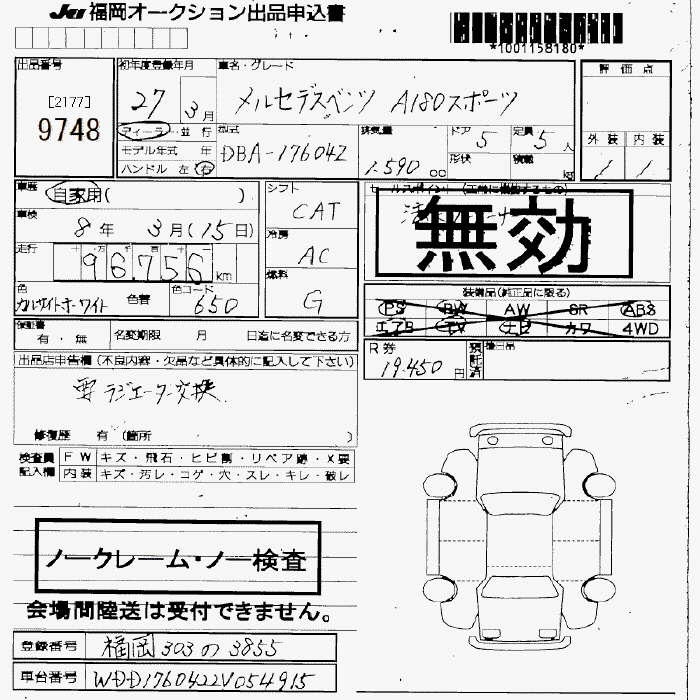 JU 福岡オークション出品申込書
*1001158180*
出品番号
[2177]
9748
初年度登録年月
27 3月
車名・グレード
メルセデスベンツ A180スポーツ
評価点
外装 内装
/ /
ディーラー・並行
モデル年式 年
ハンドル 左 右
型式
DBA-176042
排気量
1.590 cc
ドア 5
形状
定員 5人
積載 kg
車歴
自家用( )
車検
8年 3月(15日)
走行
十 万 千 百 十
96.756 km
色
カルサイトホワイト
色替
色コード
650
シフト
CAT
冷房
AC
燃料
G
セールスポイント (正常に機能するもの)
無効
装備品(純正品に限る)
PS PW AW SR ABS
エアB TV ナビ カワ 4WD
保証書
有・無
名変期限 月 日迄に名変できる方
R券
19.450円
預託済
出品店申告欄 (不良内容・欠品など具体的に記入して下さい)
要ラジエーター交換
修復歴 有 (箇所 )
検査員記入欄
FW キズ・飛石・ヒビ割・リペア跡・X要
内装 キズ・汚レ・コゲ・穴・スレ・キレ・破レ
ノークレーム・ノー検査
会場間陸送は受付できません。
登録番号 福岡 303 の 3855
車台番号 WDD1760422V054915